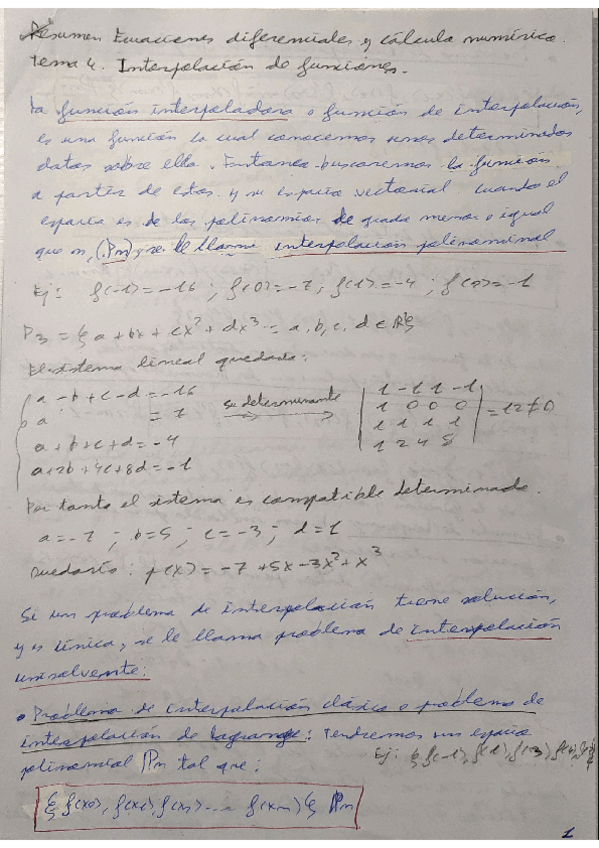 Resumen Ecuaciones diferenciales y cálculo numérico.
Tema 4. Interpolación de funciones.
La función interpoladora o función de interpolación,
es una función la cual conocemos unos determinados
datos sobre ella. Entonces buscaremos la función
a partir de estos y su espacio vectorial. Cuando el
espacio es de los polinomios de grado menor o igual
que n, (Pn) se le llama interpolación polinominal
Ej: f(-1)=-16 ; f(0)=-7 ; f(1)=-4 ; f(2)=-1
P3 = { a + bx + cx² + dx³ = a, b, c, d ∈ R}
El sistema lineal quedaría:
a - b + c - d = -16
a = 7
a + b + c + d = -4
a + 2b + 4c + 8d = -1
su determinante
| 1 -1 1 -1 |
| 1 0 0 0 |
| 1 1 1 1 |
| 1 2 4 8 | = 12 ≠ 0
Por tanto el sistema es compatible determinado.
a = -7 ; b = 5 ; c = -3 ; d = 1
Quedaría: p(x) = -7 + 5x - 3x² + x³
Si un problema de interpolación tiene solución,
y es única, se le llama problema de interpolación
unisolvente:
• Problema de interpolación clásico o problema de
interpolación de Lagrange: Tendremos un espacio
polinomial Pn tal que:
Ej: { f(-1), f(1), f(3), f(4)
{ f(x0), f(x1), f(x2) ... f(xn) } Pn
1